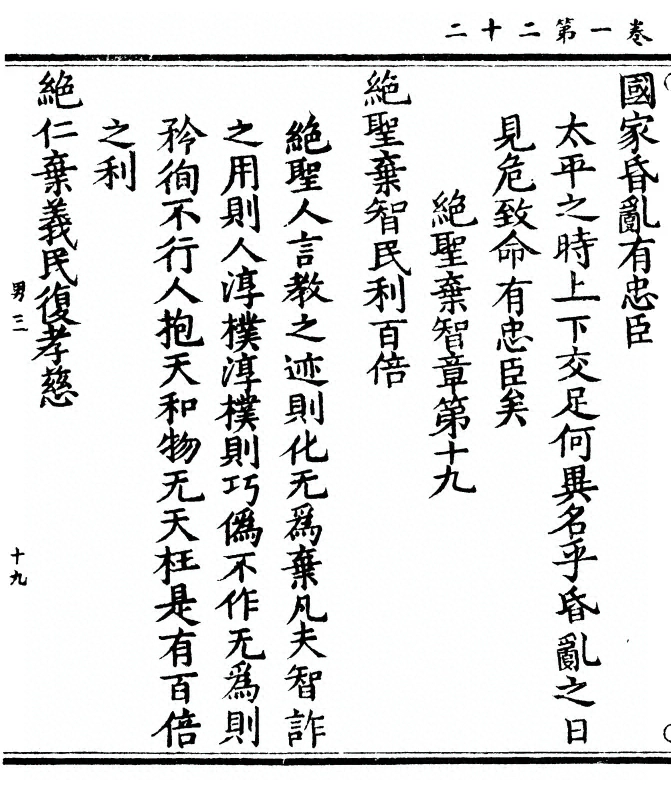 二十二第一卷
國家昏亂有忠臣
太平之時上下交足何異名乎昏亂之日
見危致命有忠臣矣
絕聖棄智章第十九
絕聖棄智民利百倍
絕聖人言教之迹則化无為棄凡夫智詐
之用則人淳樸淳樸則巧偽不作无為則
矜徇不行人抱天和物无夭枉是有百倍
之利
絕仁棄義民復孝慈
男三
十九